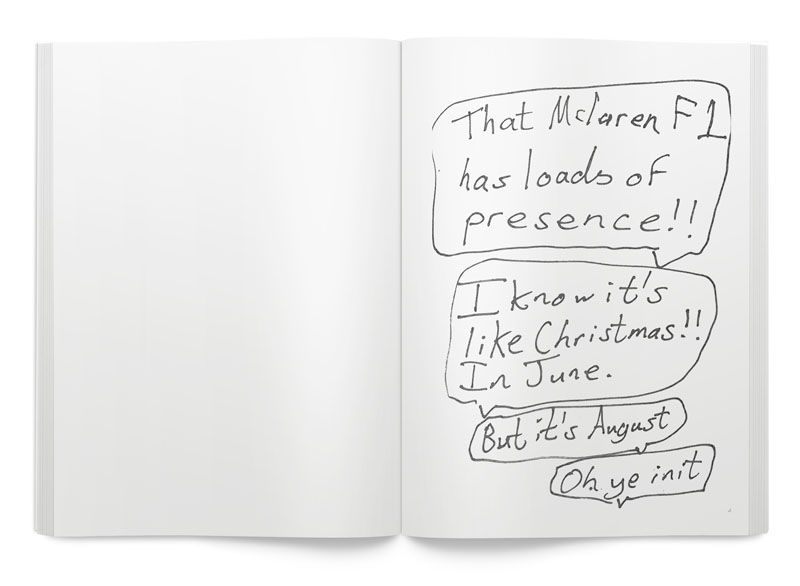 That Mclaren F1
has loads of
presence!!
I know it's
like Christmas!!
In June.
But it's August
Oh ye init